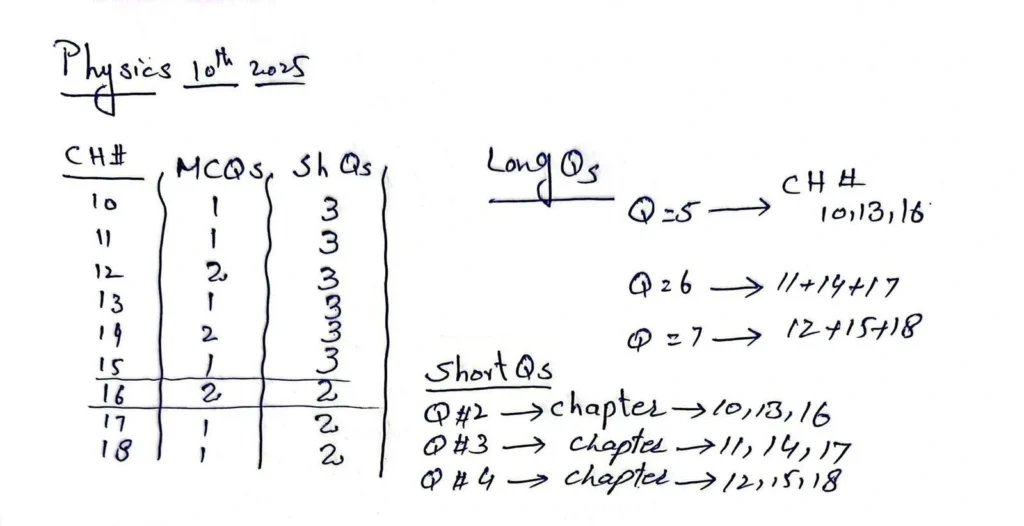 Physics 10th 2025
CH# MCQs, Sh Qs
10 1 3
11 1 3
12 2 3
13 1 3
14 2 3
15 1 3
16 2 2
17 1 2
18 1 2
Long Qs
Q=5 → CH #
10,13,16
Q=6 → 11+14+17
Q=7 → 12+15+18
Short Qs
Q#2 → chapter → 10,13,16
Q#3 → chapter → 11,14,17
Q#4 → chapter → 12,15,18